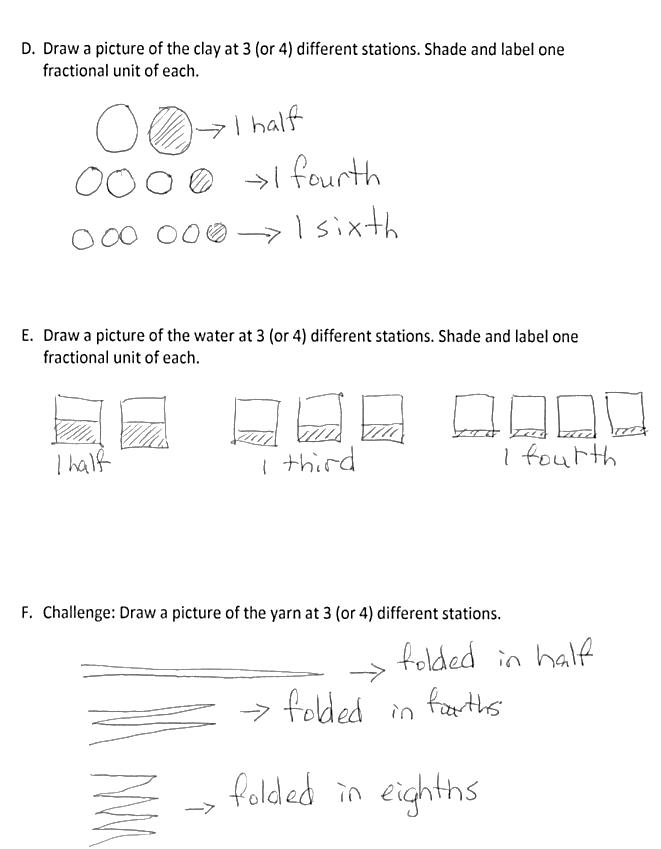 D. Draw a picture of the clay at 3 (or 4) different stations. Shade and label one
fractional unit of each.
→ 1 half
→ 1 fourth
→ 1 sixth
E. Draw a picture of the water at 3 (or 4) different stations. Shade and label one
fractional unit of each.
1 half 1 third 1 fourth
F. Challenge: Draw a picture of the yarn at 3 (or 4) different stations.
→ folded in half
→ folded in fourths
→ folded in eighths